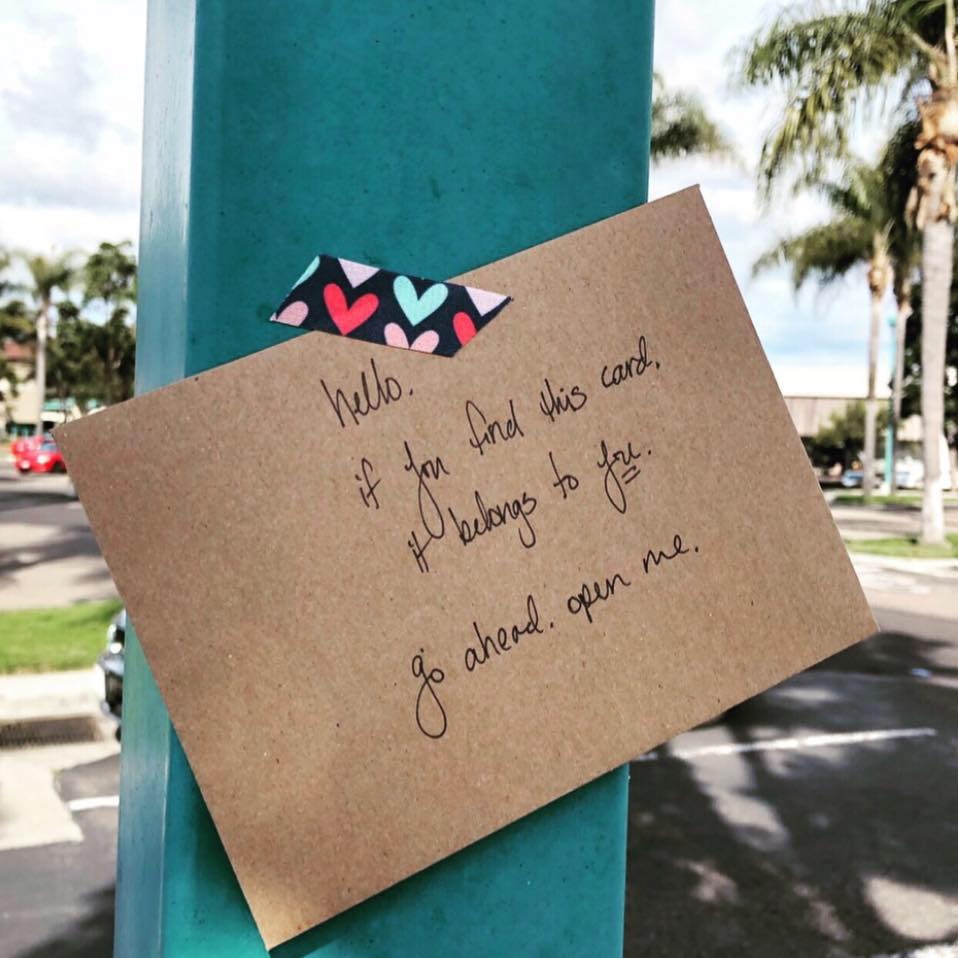 hello.
if you find this card,
it belongs to you.
go ahead. open me.